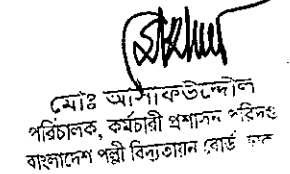 মোঃ আসাফউদ্দৌলা
পরিচালক, কর্মচারী প্রশাসন পরিদপ্তর
বাংলাদেশ পল্লী বিদ্যুতায়ন বোর্ড